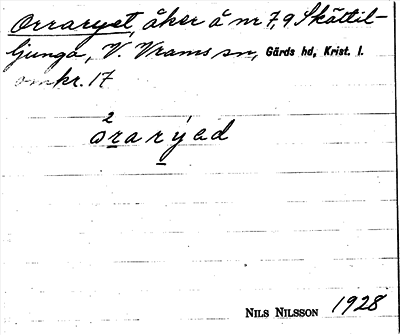 Orraryet, åker å nr 7,9 Skättil-
ljunga, V. Vrams sn, Gärds hd, Krist. l.
omkr. 17
2
årarýed
NILS NILSSON 1928